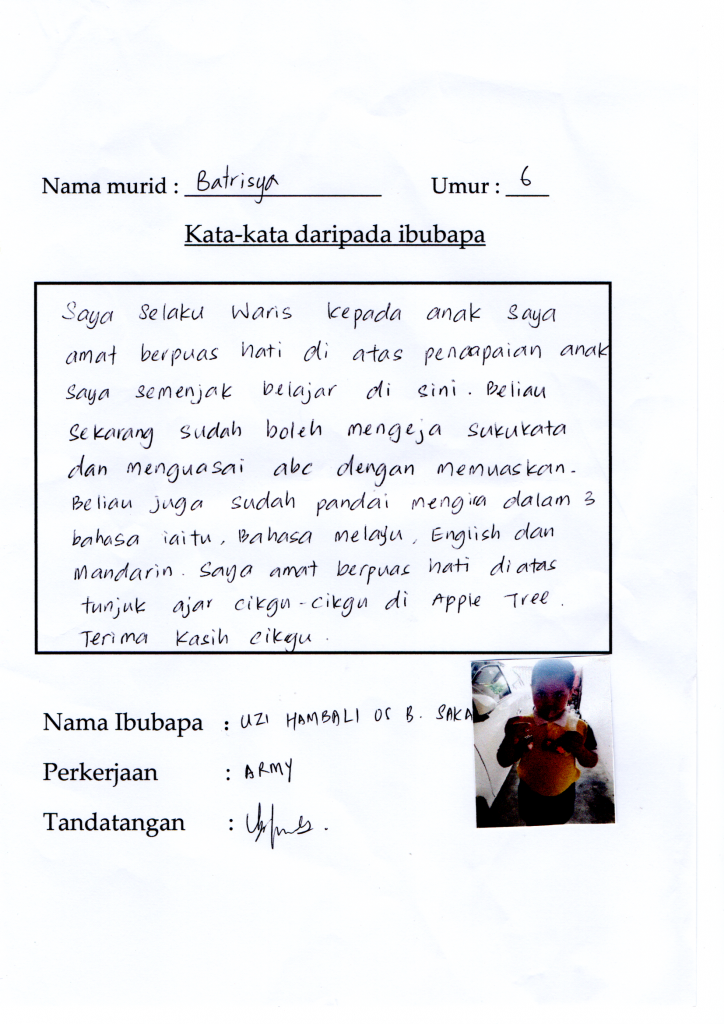 Nama murid : Batrisya Umur : 6
Kata-kata daripada ibubapa
Saya selaku waris kepada anak saya
amat berpuas hati di atas pencapaian anak
saya semenjak belajar di sini. Beliau
sekarang sudah boleh mengeja sukukata
dan menguasai abc dengan memuaskan.
Beliau juga sudah pandai mengira dalam 3
bahasa iaitu, Bahasa melayu, English dan
Mandarin. Saya amat berpuas hati diatas
tunjuk ajar cikgu-cikgu di Apple Tree.
Terima kasih cikgu.
Nama Ibubapa : UZI HAMBALI B. SAKA
Perkerjaan : ARMY
Tandatangan :